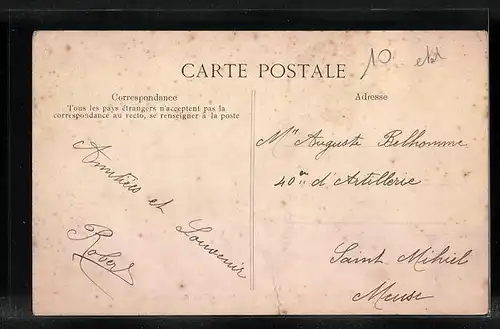 10
CARTE POSTALE
Correspondance
Tous les pays étrangers n'acceptent pas la
correspondance au recto, se renseigner à la poste
Amitiés et Souvenir
Robert
Adresse
Mr Auguste Belhomme
40em d'Artillerie
Saint Mihiel
Meuse